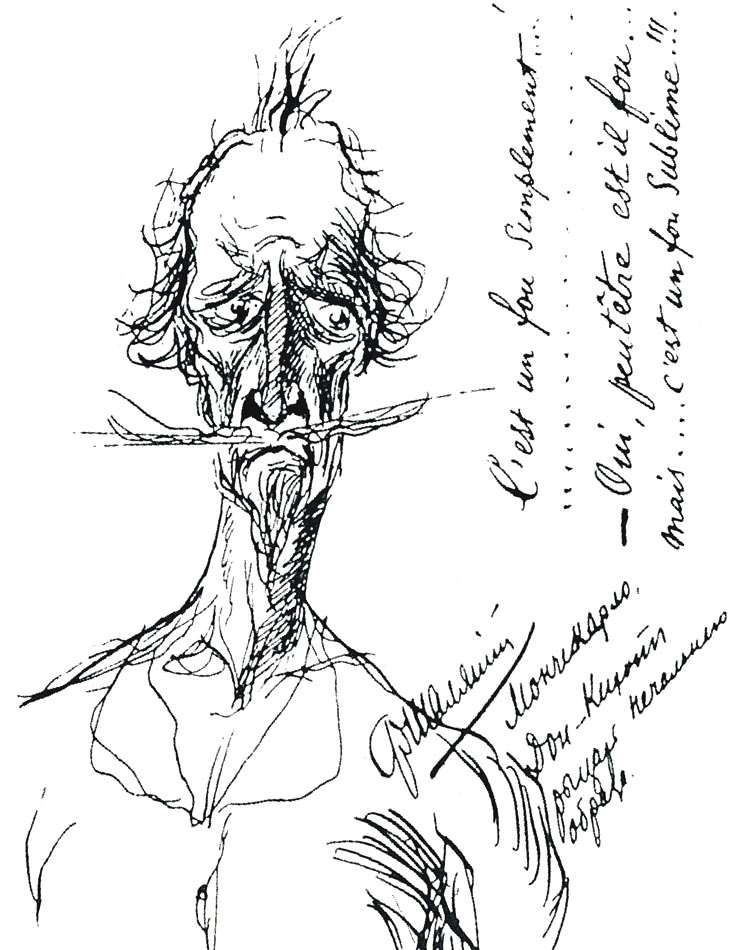 C'est un fou simplement....
— Oui, peutêtre est il fou...
mais.... c'est un fou Sublime!!!..
ФШаляпин
Монтекарло.
Дон-Кихот
рыцарь печального
образа.